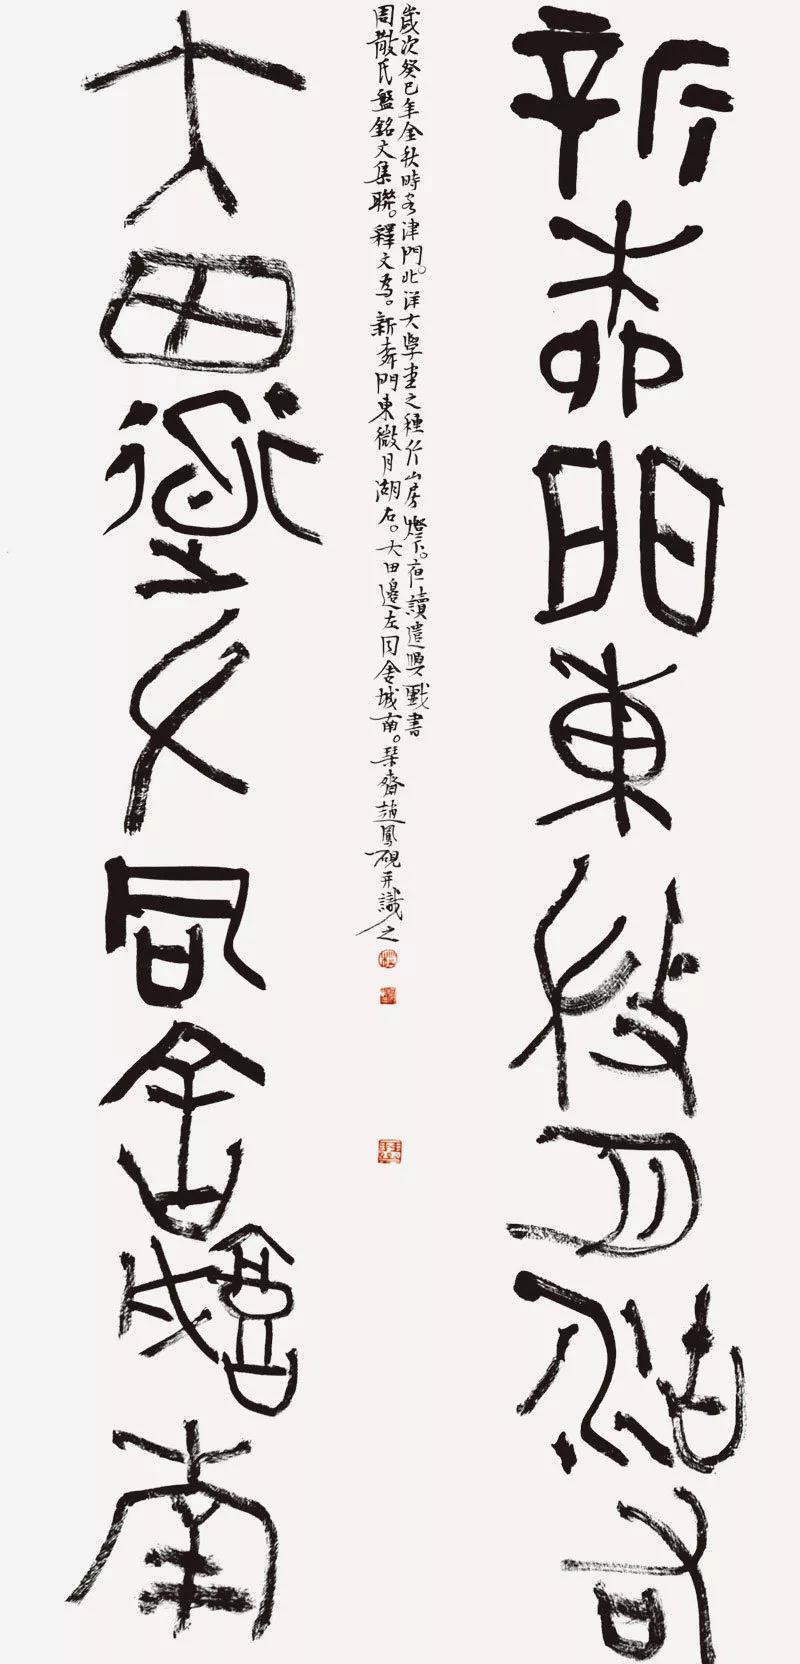 新柳門東微月湖右
歲次癸巳年金秋時客津門。北洋大學堂之種竹山房燈下。夜讀遣興戲書
周散氏盤銘文集聯。釋文為。新柳門東微月湖右。大田邊左同舍城南。琴齋趙鳳硯并識之
大田邊左同舍城南